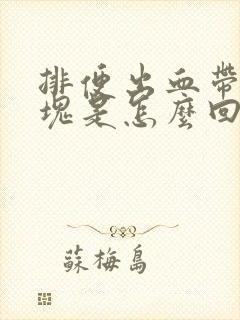 排便出血帶
塊是怎麼回
蘇梅島